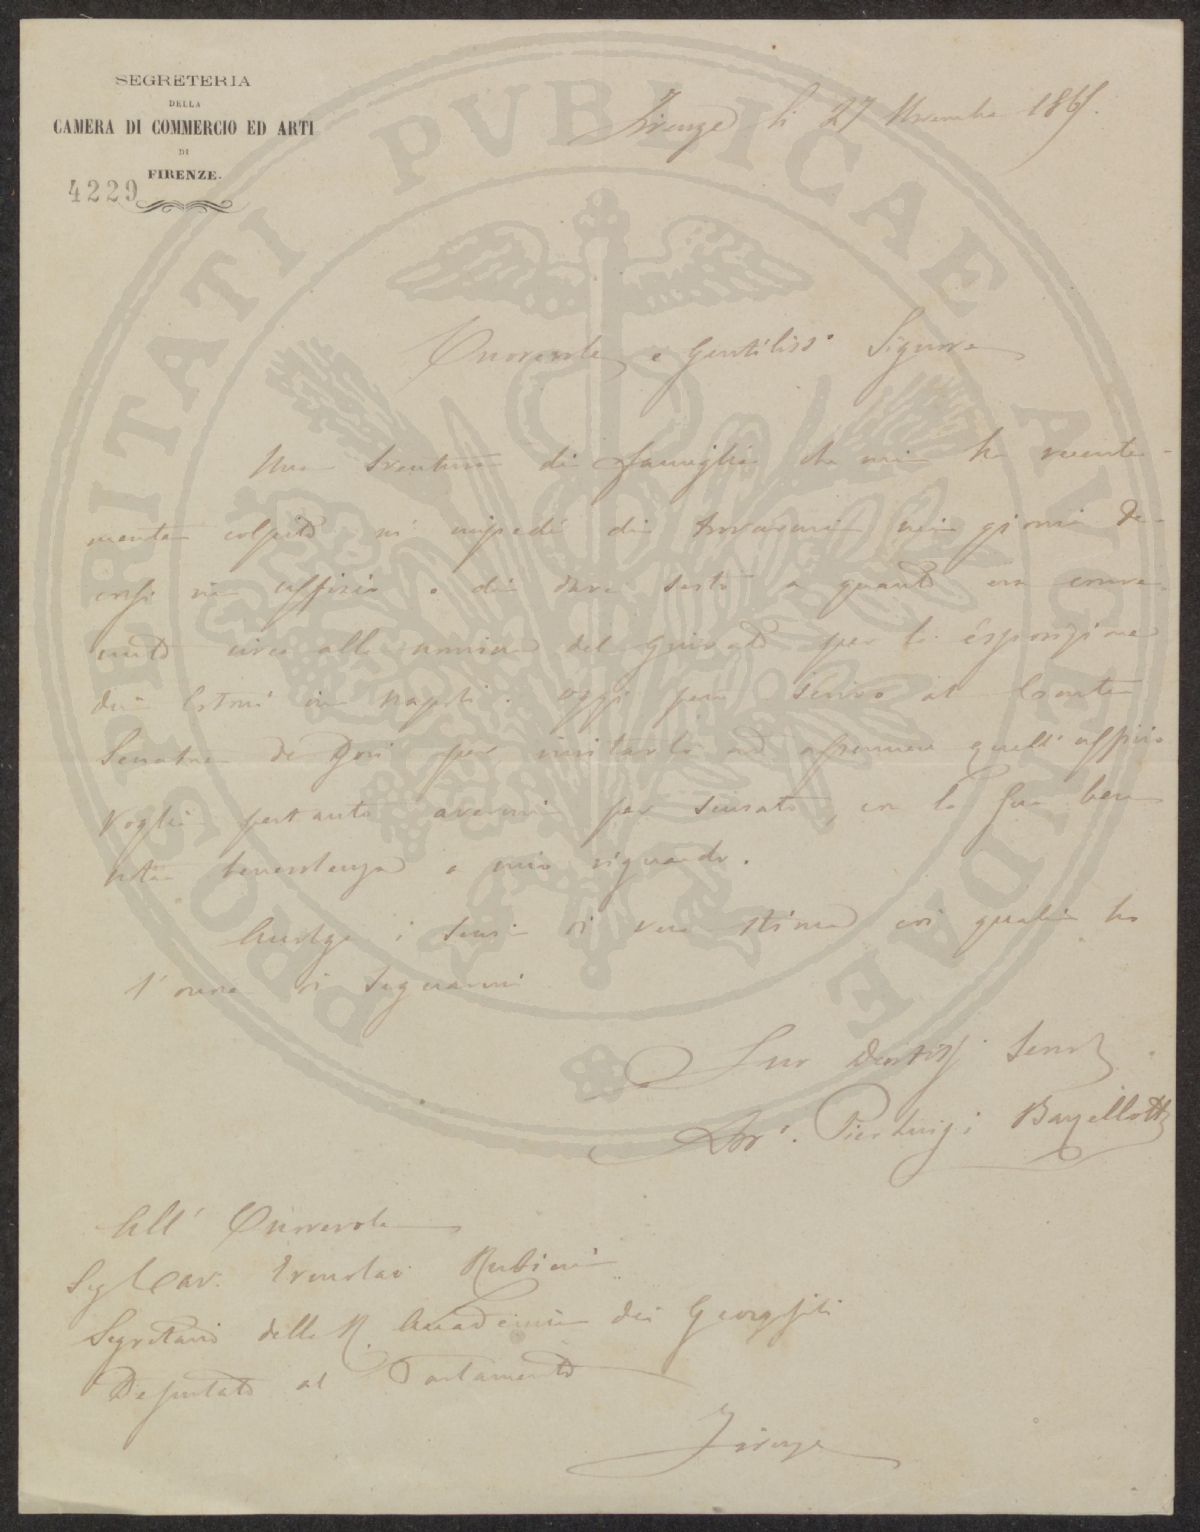 SEGRETERIA
DELLA
CAMERA DI COMMERCIO ED ARTI
DI
FIRENZE.
4229
Firenze li 27 Novembre 186
Onorevole e Gentiliss.o Signore
Una sventura di famiglia che mi ha recente-
mente colpito m' impedì di trovarmi nei giorni de-
corsi in uffizio e di dare sesto a quanto era conve-
nuto circa alla del Giurato per la esposizione
dei Cotoni in Napoli. Oggi però scrivo al Conte
Senatore De Gori per invitarlo ad assumere quell' uffizio
Voglia pertanto avermi per scusato, con la Sua ben
nota benevolenza a mio riguardo.
Accolga i sensi di vera stima coi quali ho
l' onore di segnarmi
Suo Devotiss. Servo
Dr. Pier Luigi Barzellotti
All' Onorevole
Sig. Cav. Ermolao Rubieri
Segretario della R. Accademia dei Georgofili
Deputato al Parlamento
Firenze
PROSPERITATI PVBLICAE AVGENDAE